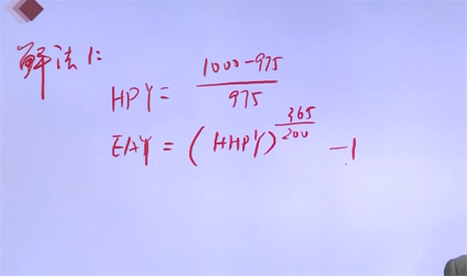 解法1:
HPY = \frac{1000-975}{975}
EAY = (1+HPY)^{\frac{365}{200}} -1